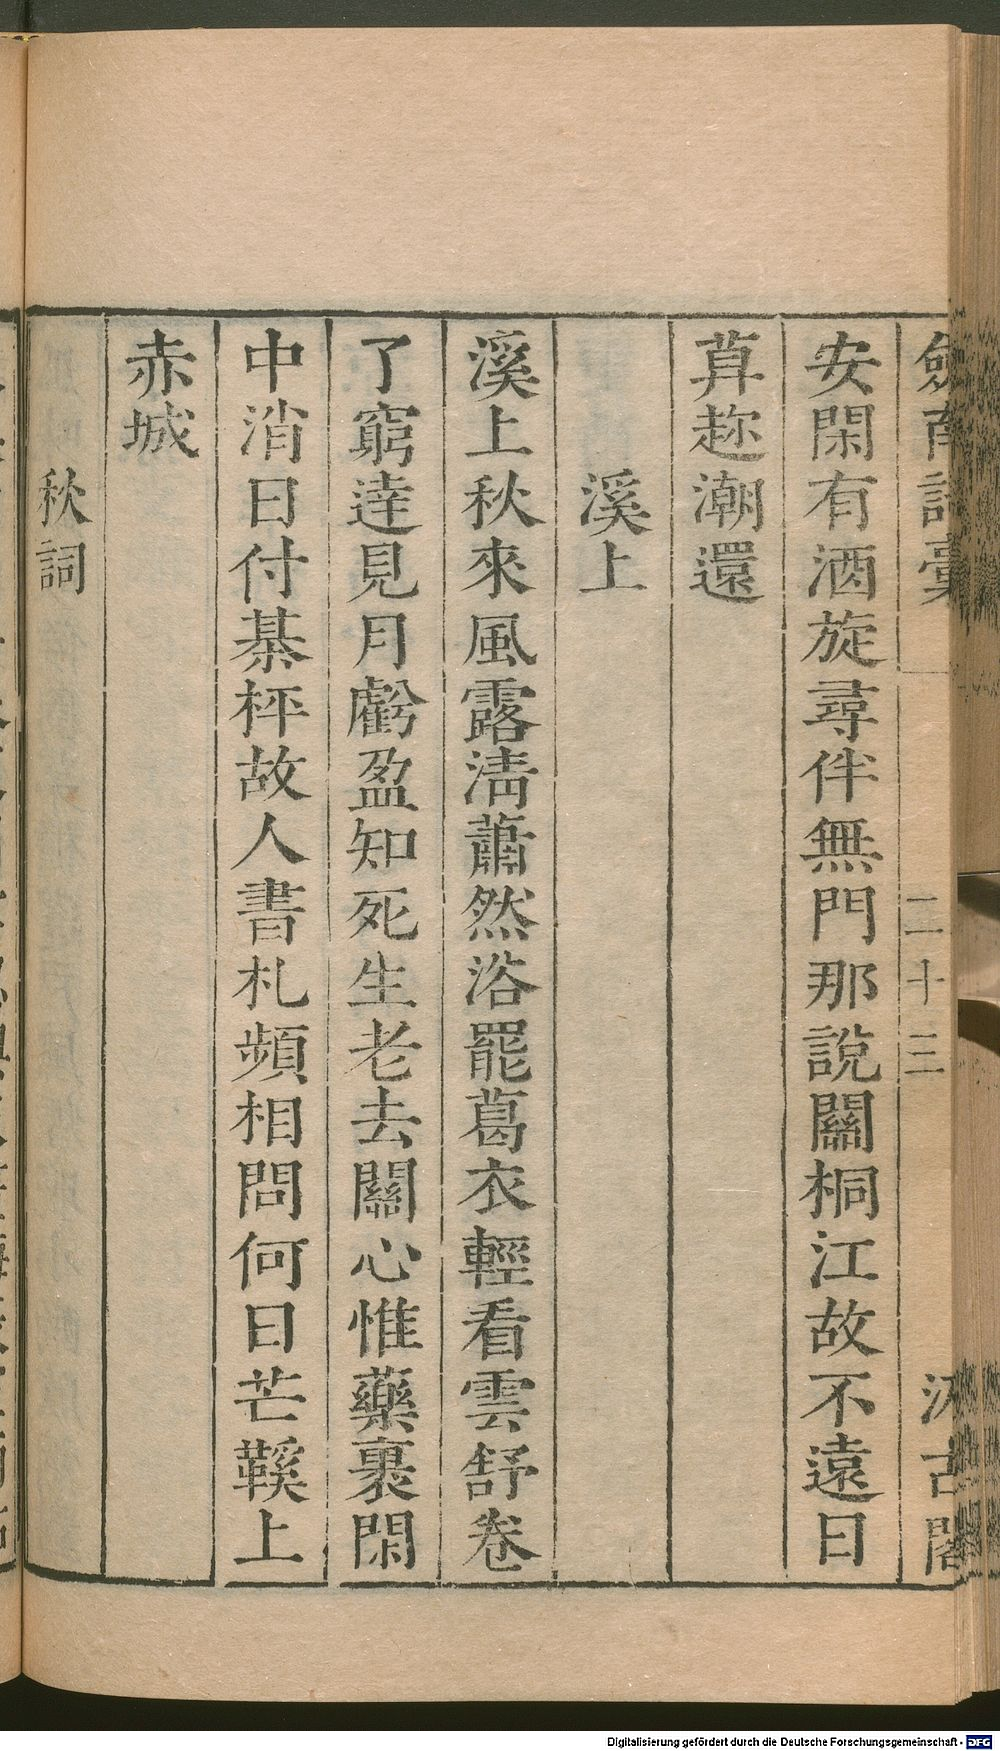 劒南詩稾
二十三
汲古閣
安閑有酒旋尋伴無門那說關桐江故不遠日
算趂潮還
溪上
溪上秋來風露淸蕭然浴罷葛衣輕看雲舒卷
了窮達見月虧盈知死生老去關心惟藥裹閑
中消日付棊枰故人書札頻相問何日芒鞵上
赤城
秋詞
Digitalisierung gefördert durch die Deutsche Forschungsgemeinschaft - DFG